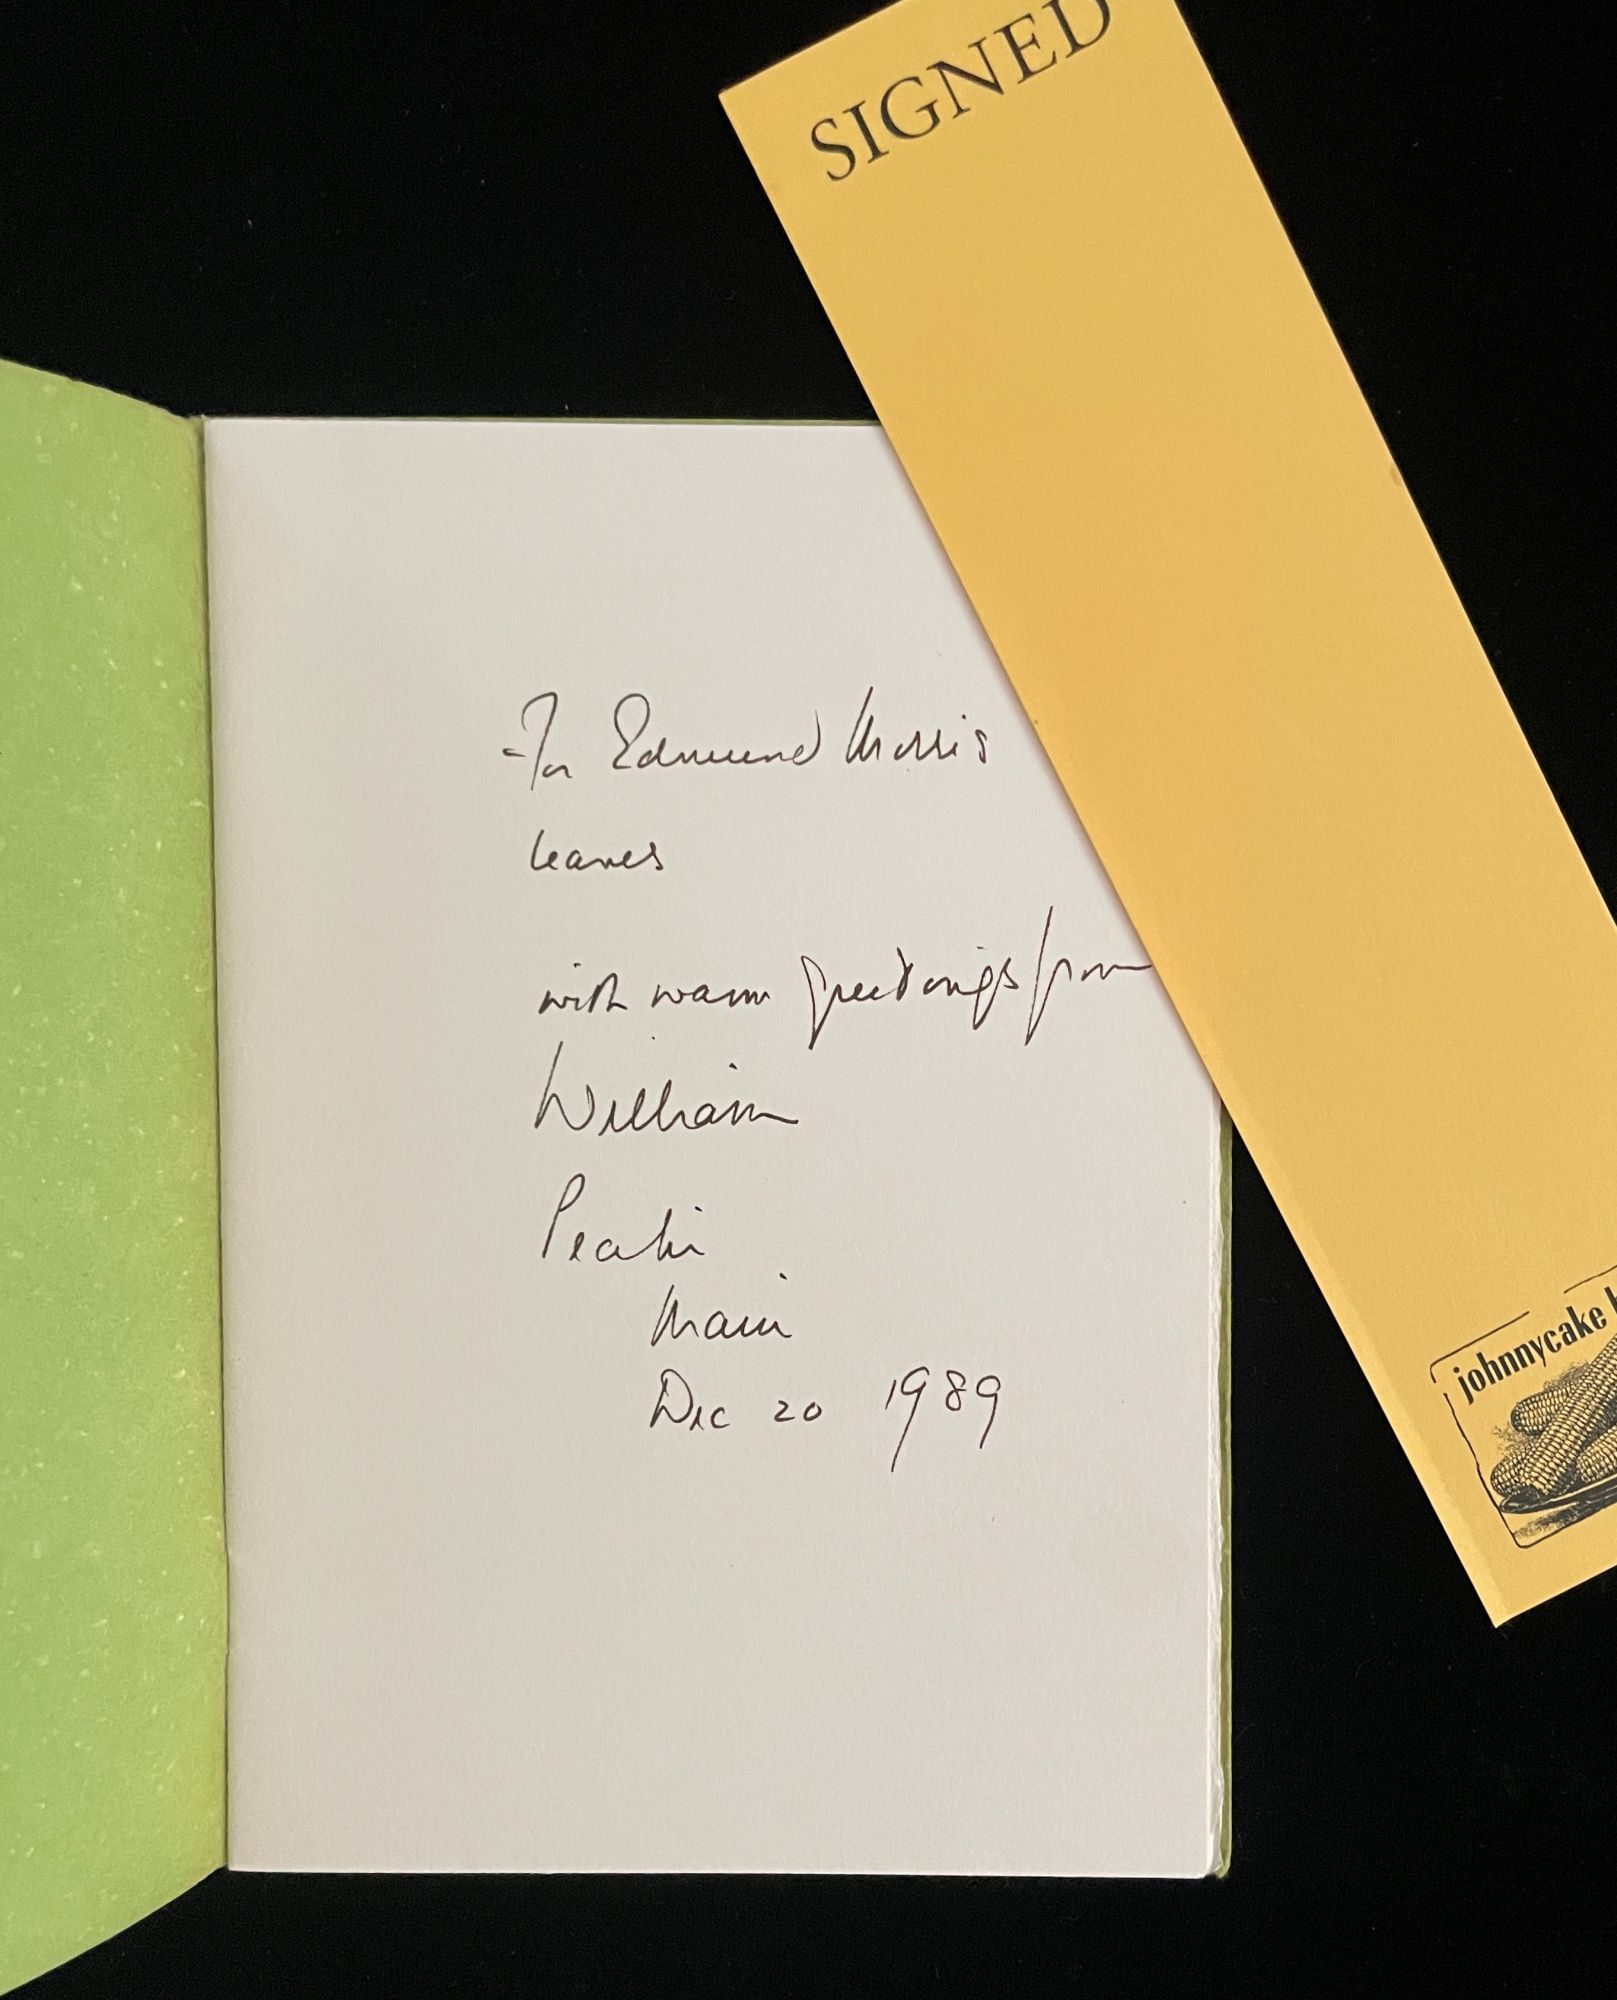 SIGNED
For Edmund Morris
leaves
with warm greetings from
William
Peahi
Maui
Dec 20 1989
johnnycake